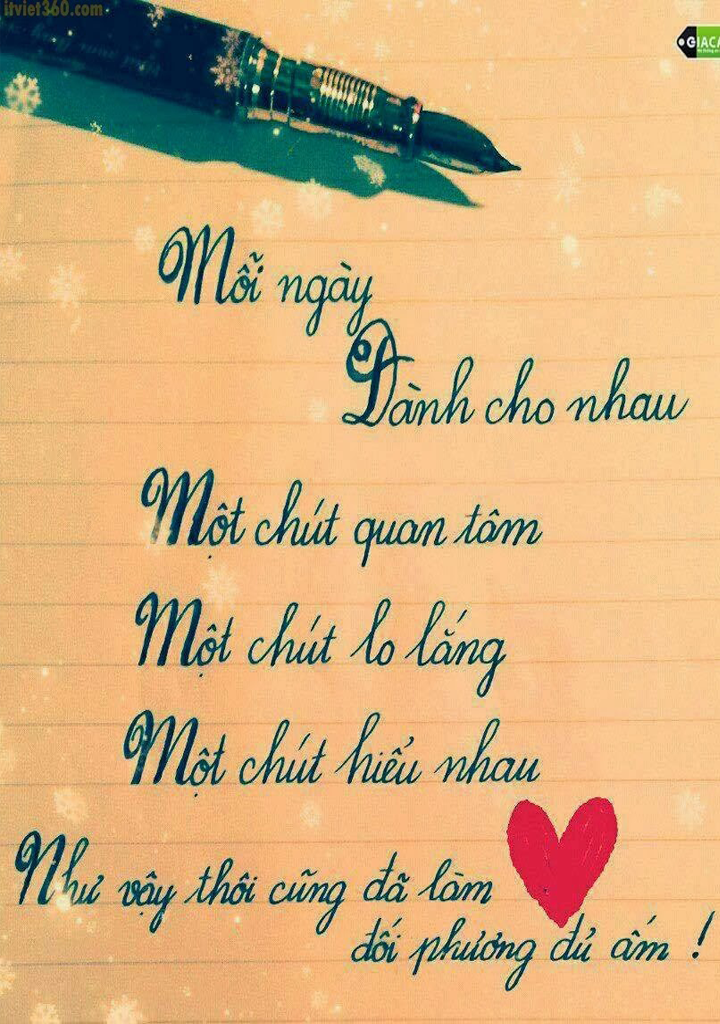 itviet360.com
Mỗi ngày
Dành cho nhau
Một chút quan tâm
Một chút lo lắng
Một chút hiểu nhau
Như vậy thôi cũng đã làm
đối phương đủ ấm !